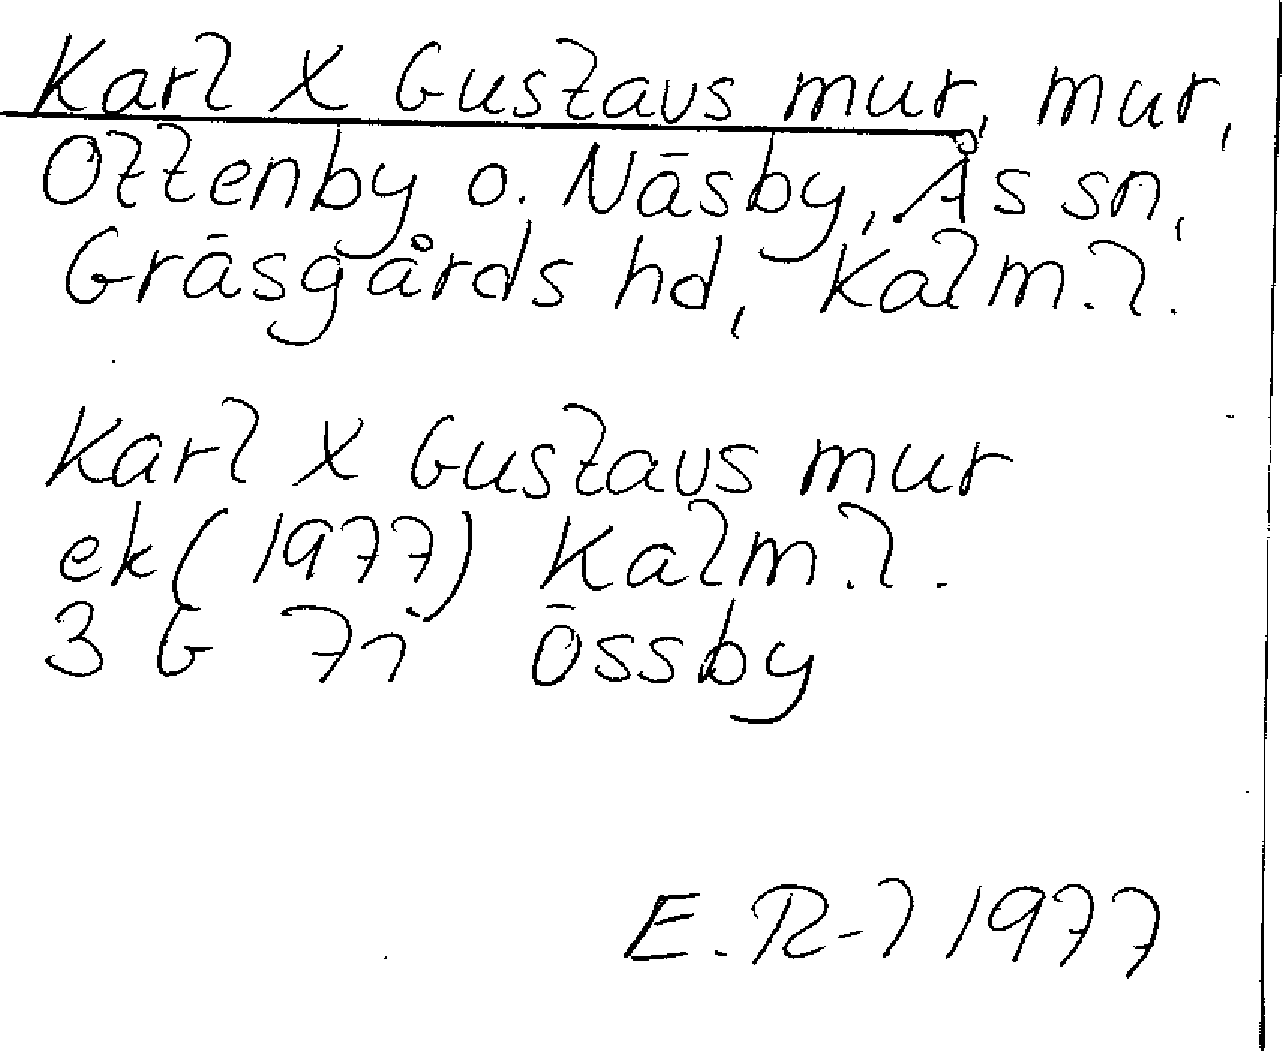 Karl X Gustavs mur, mur,
Ottenby o. Näsby, Ås sn,
Gräsgårds hd, Kalm. l.
Karl X Gustavs mur
ek (1977) Kalm. l.
3 G Össby
E. R-l 1977